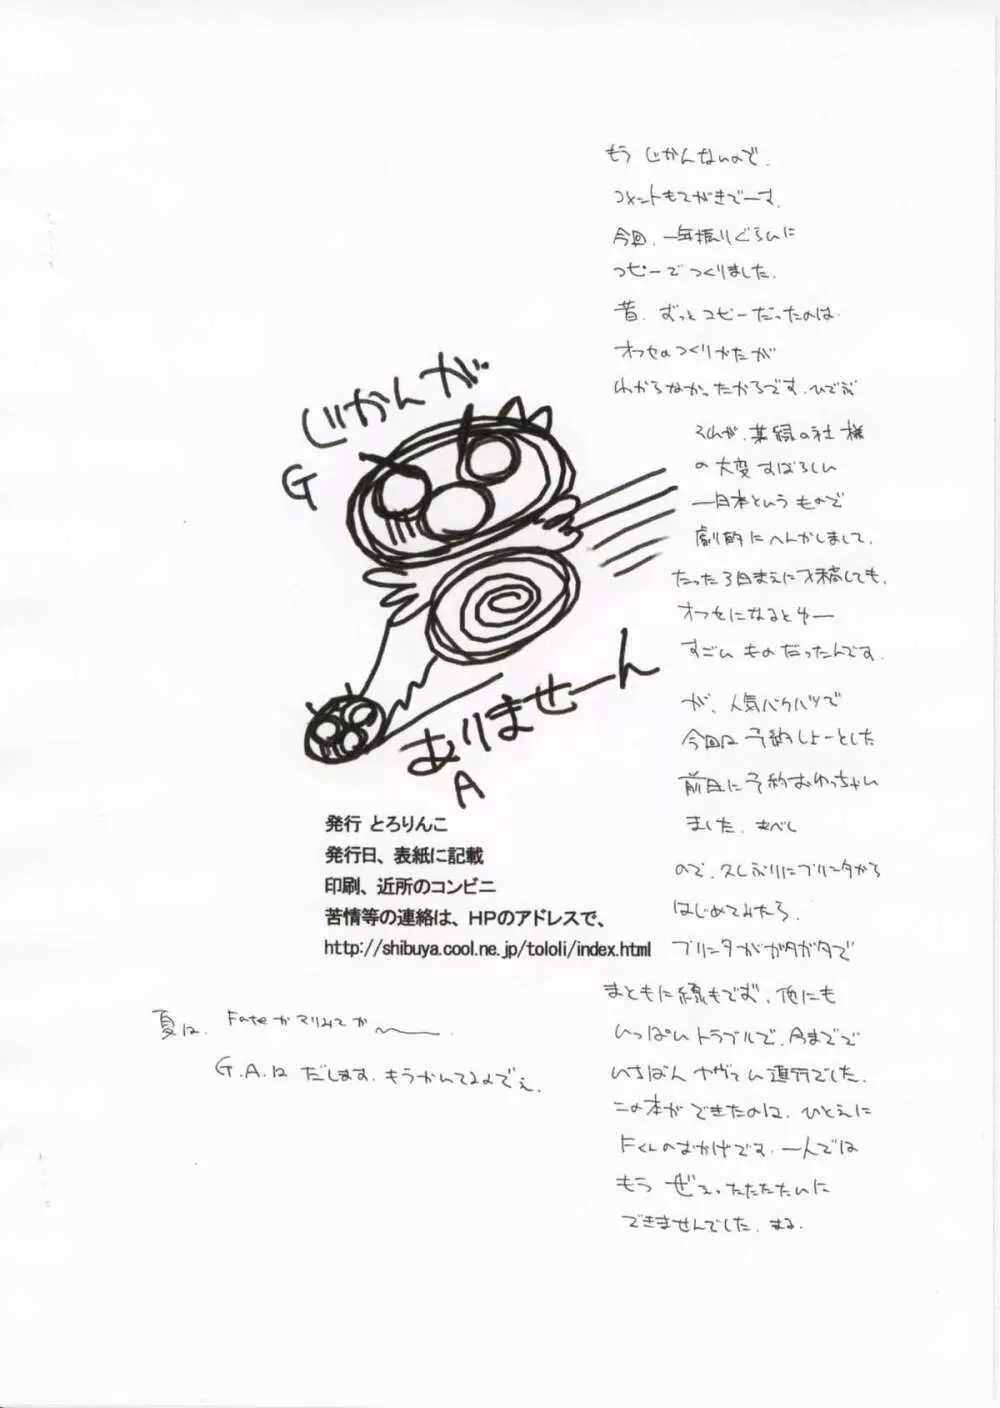 もう じかんないので.
コメントもてがきでーす.
今回. 一年振りぐらいに
コピーでつくりました.
昔. ずっとコピーだったのは.
オフセのつくりかたが
わからなかったからです. ひでぶ
の大変すばらしい
一日本というもので
劇的にへんかしまして.
たった3日まえに入稿しても.
オフセになるとゆー
すごいものだったんです.
が、人気バクハツで
今回は予約しよーとした
前日に予約おわっちゃい
ました. まべし
ので. ひさしぶりにプリンタから
はじめてみたら.
プリンタがガタガタで
まともに線もでず. 他にも
いっぱいトラブルで. 今までで
いちばんヤヴァい進行でした.
この本ができたのは. ひとえに
Fくんのおかげです. 一人では
もう ぜぇったたたたいに
できませんでした. まる.
じかんが
G
ありませーん
A
発行 とろりんこ
発行日、表紙に記載
印刷、近所のコンビニ
苦情等の連絡は、HPのアドレスで、
http://shibuya.cool.ne.jp/tololi/index.html
夏は. Fateかマリみてか〜.
G.A.は だします. もうかんてるのでぇ.